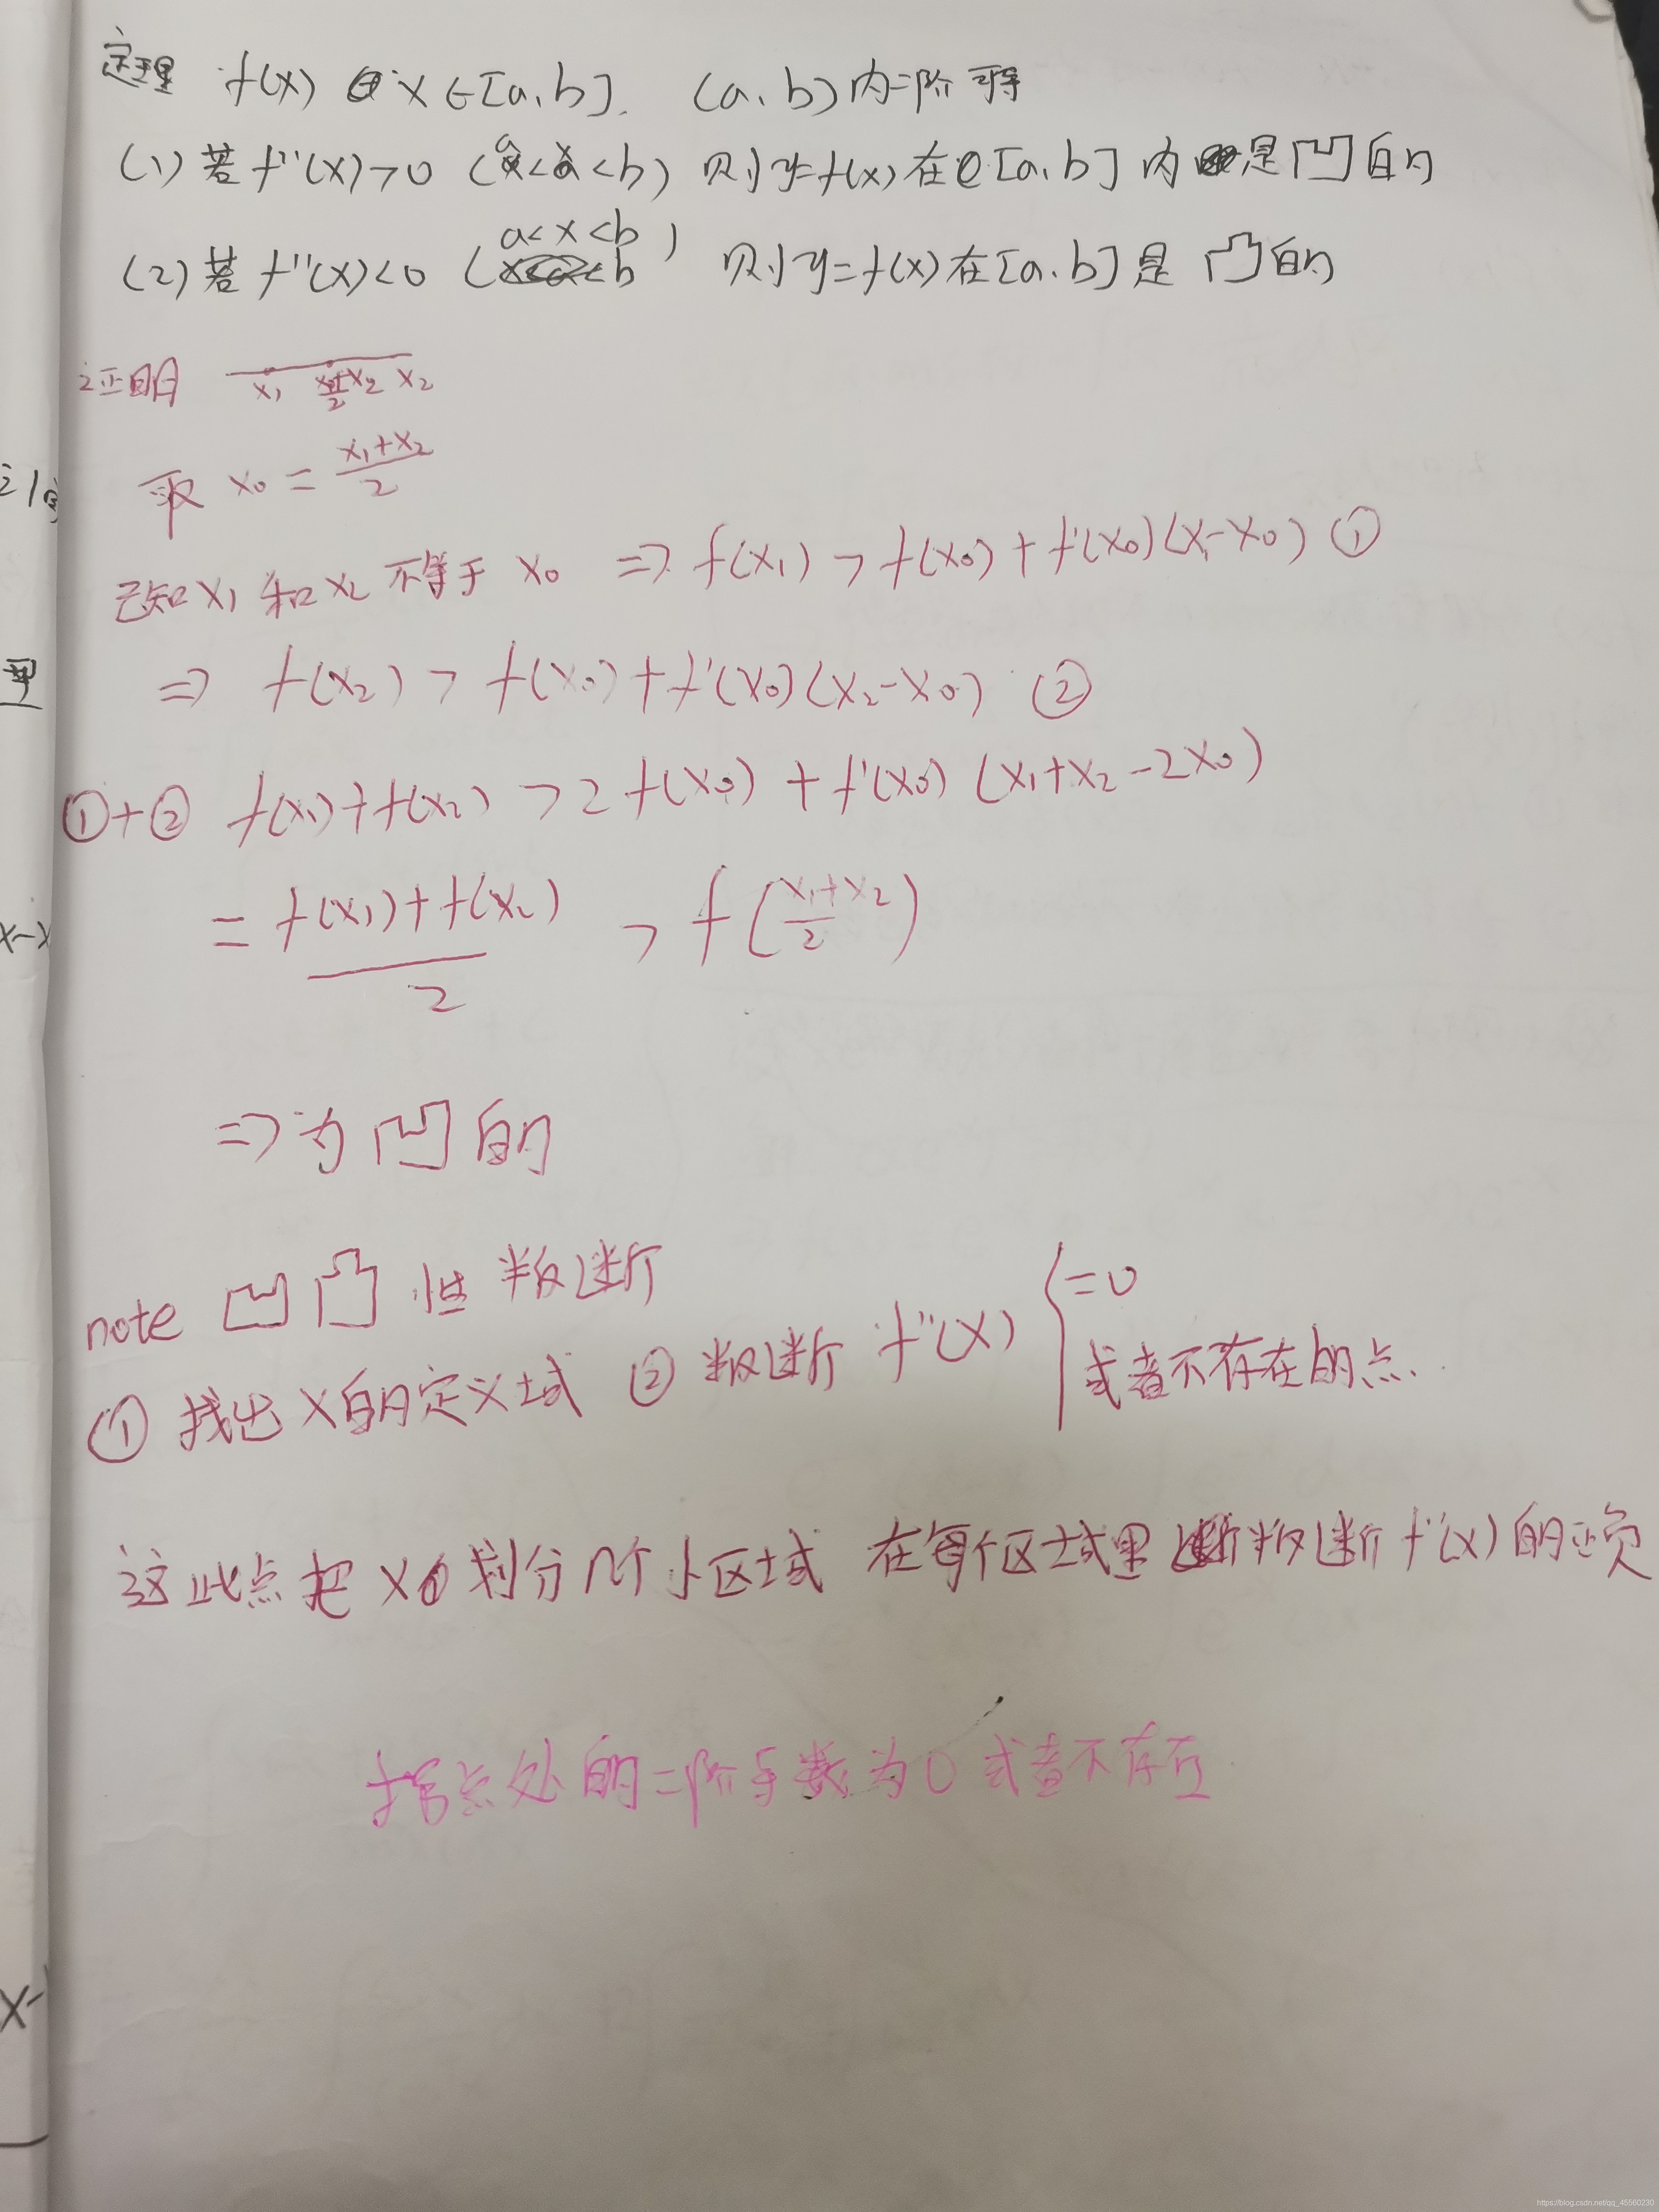 定理 f(x) x∈[a,b]. (a,b)内二阶可导
(1) 若 f''(x)>0 (a<x<b) 则y=f(x)在[a,b]内是凹的
(2) 若 f''(x)<0 (a<x<b) 则y=f(x)在[a,b]是凸的
证明 x₁ (x₁+x₂)/2 x₂
取 x₀ = (x₁+x₂)/2
已知x₁和x₂不等于x₀ ⇒ f(x₁) > f(x₀) + f'(x₀)(x₁-x₀) ①
⇒ f(x₂) > f(x₀) + f'(x₀)(x₂-x₀) ②
①+② f(x₁)+f(x₂) > 2f(x₀) + f'(x₀)(x₁+x₂-2x₀)
= (f(x₁)+f(x₂))/2 > f((x₁+x₂)/2)
⇒为凹的
note 凹凸性判断
① 找出x的定义域 ② 判断 f''(x) { =0
或者不存在的点.
这些点把x划分几个小区域 在每个区域里判断f''(x)的正负
拐点处的二阶导数为0或者不存在
https://blog.csdn.net/qq_45560230